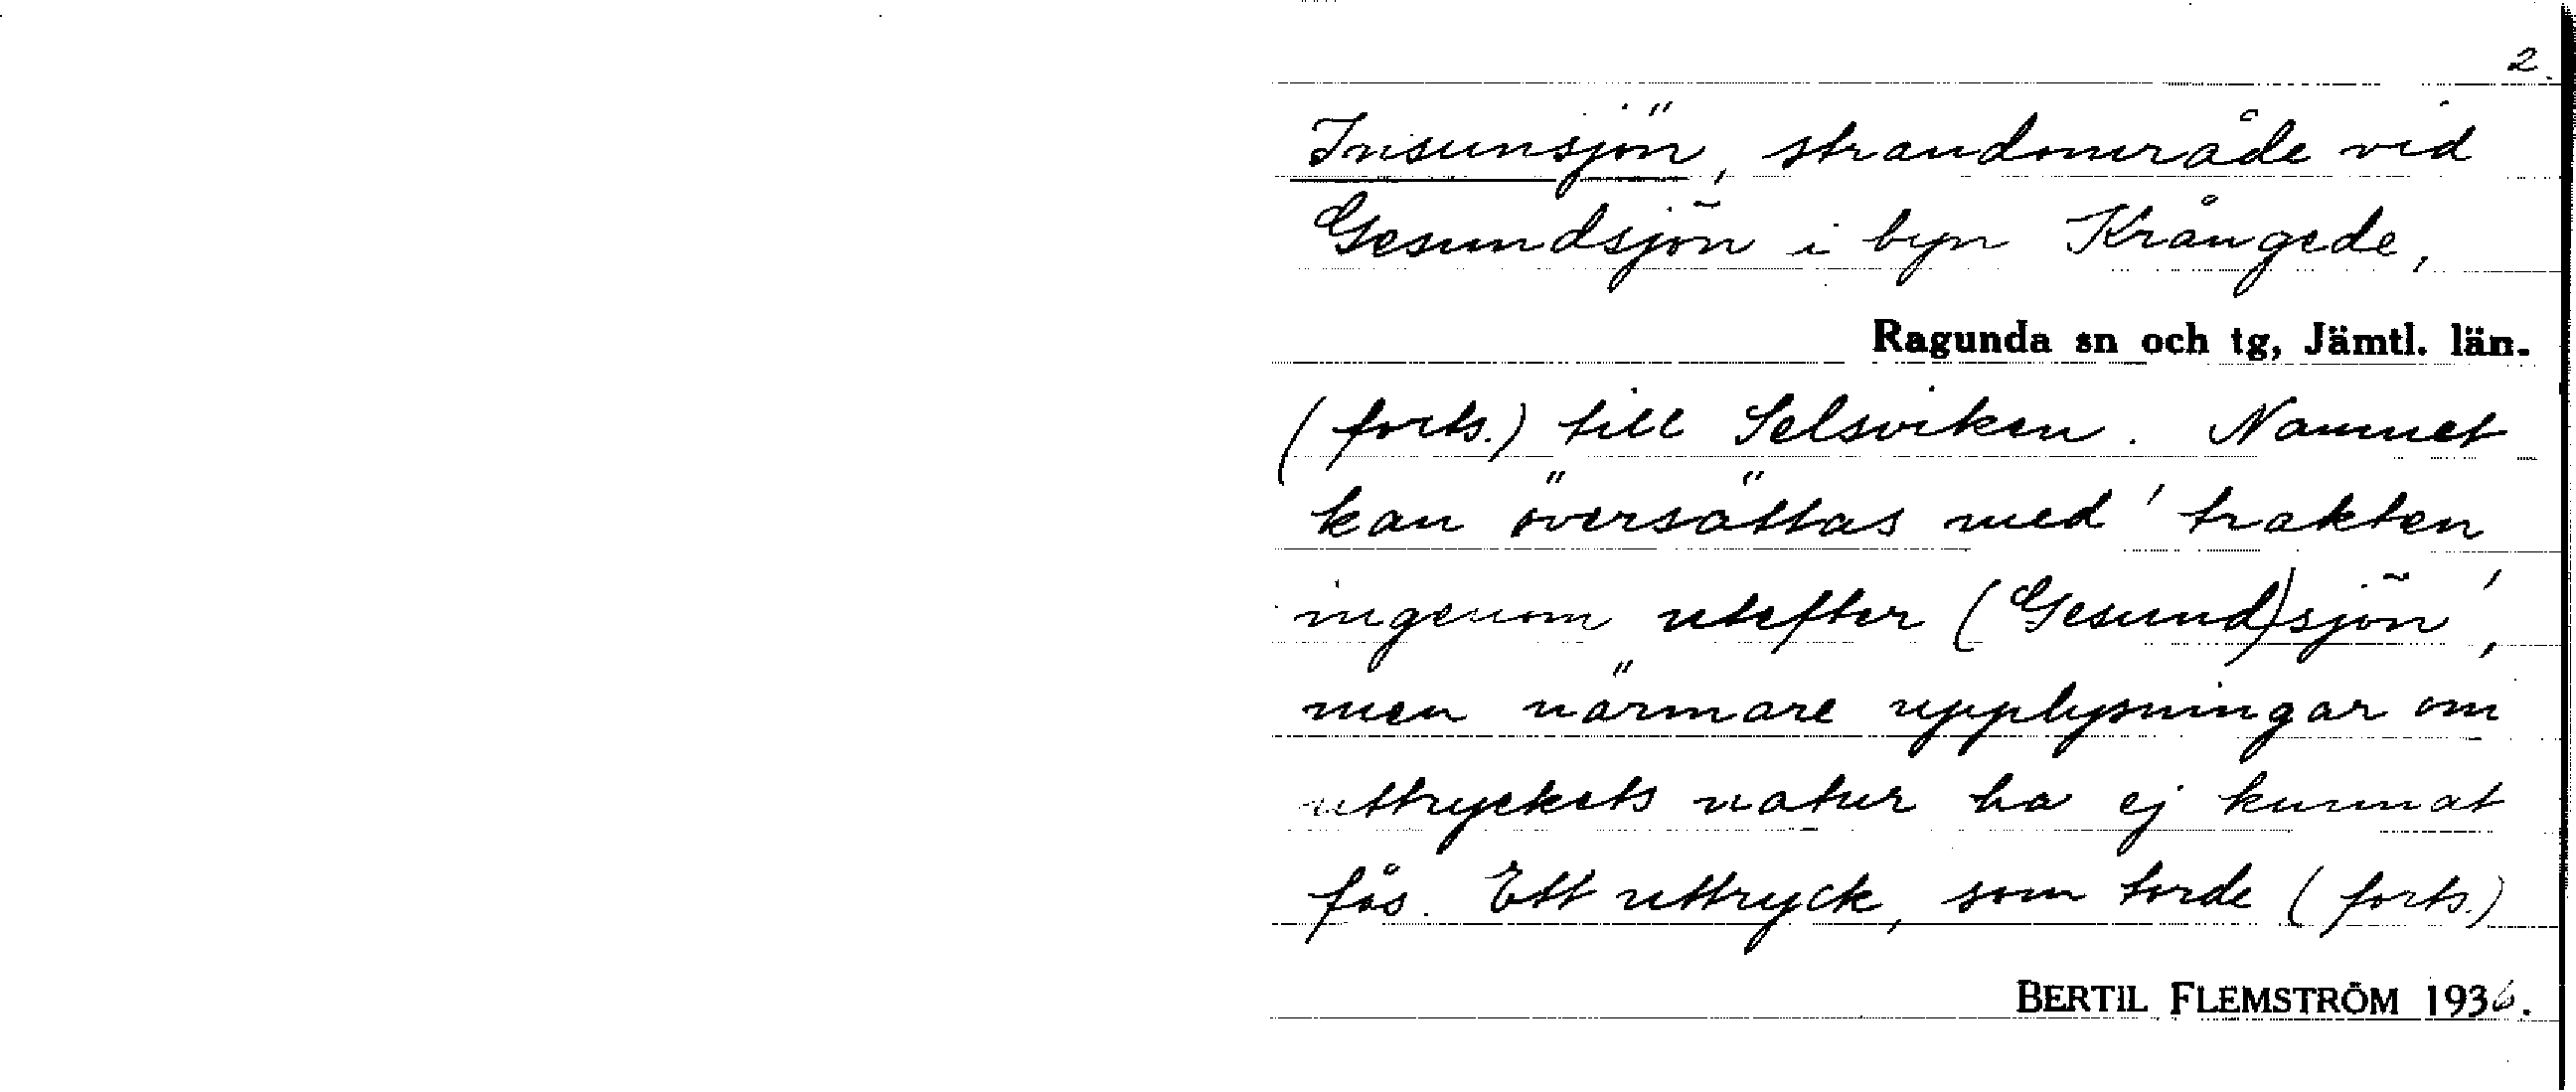 2.
Insunsjön, strandområde vid
Gesundsjön i byn Krångede,
Ragunda sn och tg, Jämtl. län.
(forts.) till Selsviken. Namnet
kan översättas med 'trakten
ingenom utefter (Gesund)sjön',
men närmare upplysningar om
uttryckets natur ha ej kunnat
fås. Ett uttryck, som torde (forts.)
BERTIL FLEMSTRÖM 1936.